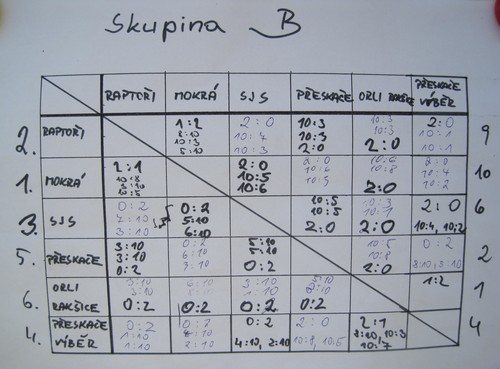 Skupina B
RAPTOŘI MOKRÁ SJS PŘESKAČE ORLI RAKŠICE PŘESKAČE VÝBĚR
2. RAPTOŘI 1:2 2:0 10:3 10:3 2:0 9
8:10 10:4 10:3 10:3 10:1
10:3 5:10 10:3 2:0 2:0 10:1
1. MOKRÁ 2:1 2:0 2:0 10:6 2:0 10
10:8 10:5 10:6 10:8 10:4
3:10 10:5 10:6 10:3 2:0 10:2
3. SJS 0:2 0:2 10:5 10:3 2:0 6
4:10 5:10 10:5 10:1
3:10 6:10 2:0 2:0 10:4, 10:2
5. PŘESKAČE 3:10 0:2 5:10 10:5 0:2 2
3:10 6:10 5:10 10:8
0:2 3:10 0:2 2:0 8:10, 5:10
6. ORLI RAKŠICE 3:10 6:10 3:10 5:10 1:2 1
3:10 8:10 1:10 8:10
0:2 0:2 0:2 0:2
4. PŘESKAČE VÝBĚR 0:2 0:2 0:2 2:0 2:1 4
1:10 4:10 8:10, 10:3
1:10 2:10 4:10, 2:10 10:8, 10:5 10:7